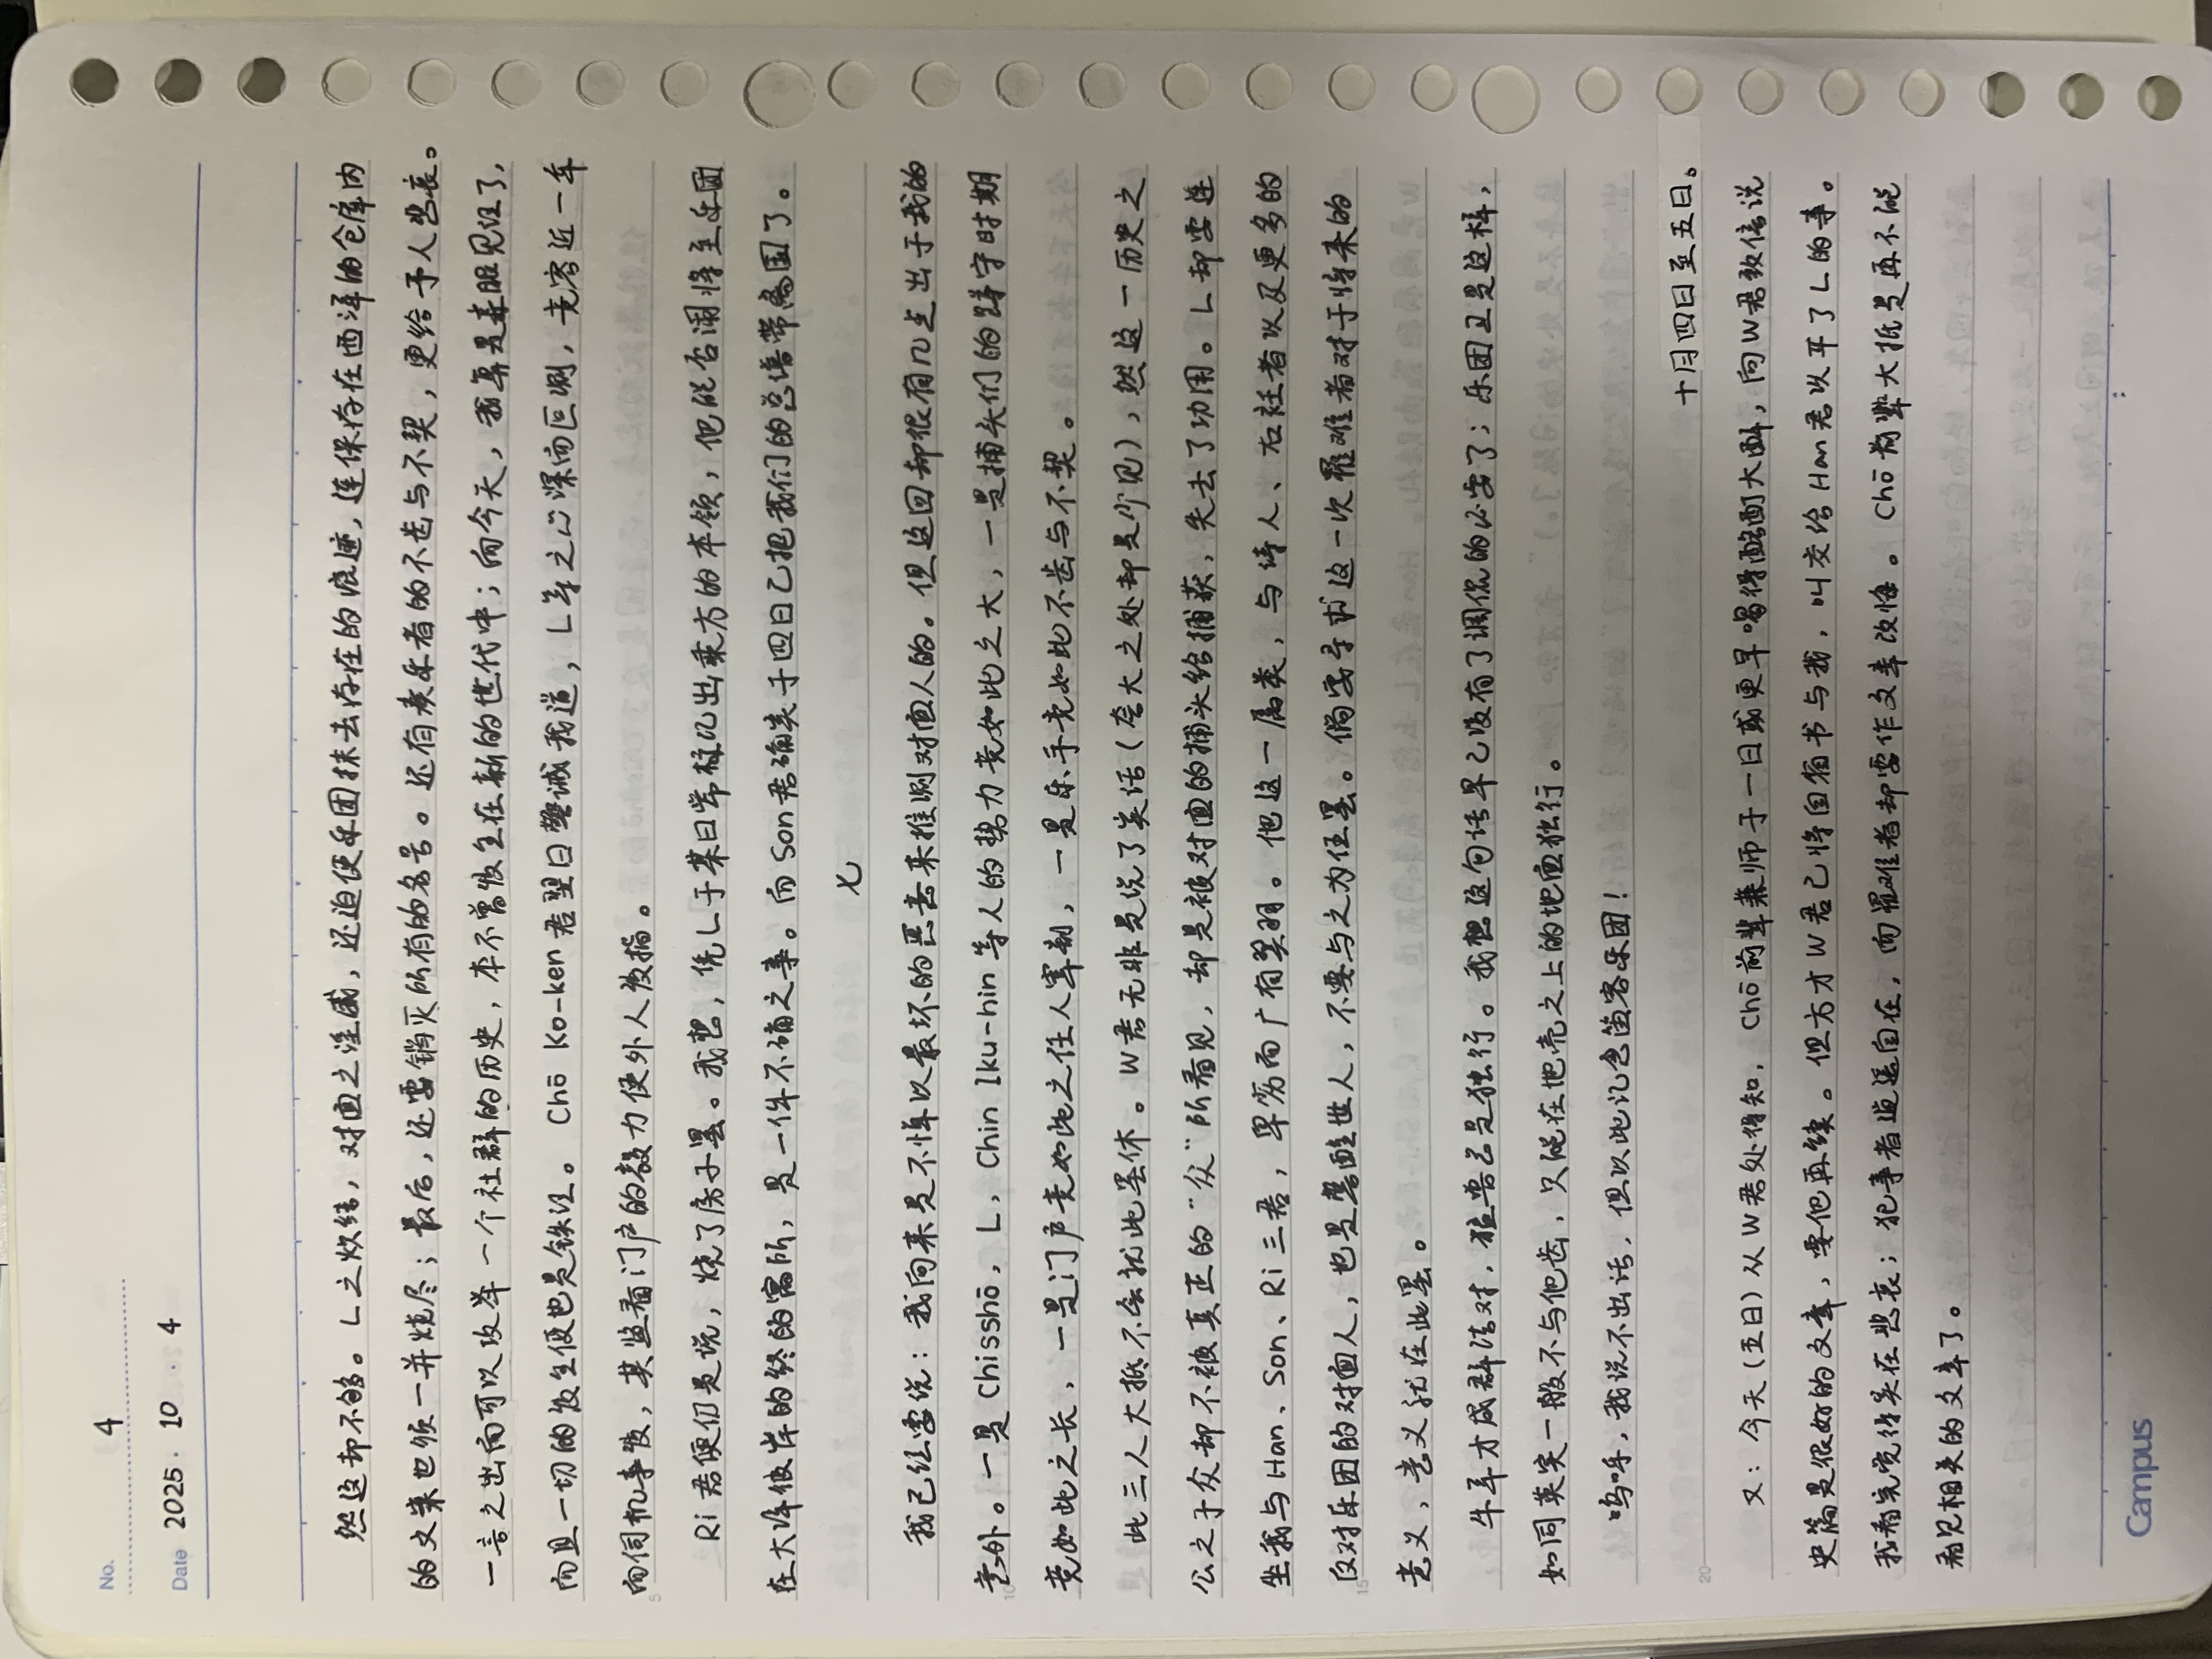 No. 4
Date 2025. 10. 4
然这却不够。L之党结，对面之淫威，还迫使乐团抹去存在的痕迹，连保存在西泽的仓库内
的文案也须一并烧尽；最后，还要销灭所有的名号。还有奏乐者的不齿与不契，更给予人悲哀。
一言之出而可以改举一个社群的历史，本不曾发生在新的世代中；向今天，我算是亲眼见证了，
而且一切的发生便也是铁证。Chō Ko-ken君翌日警诫我道，L等之心深而叵测，竟容近一年
向伺机事发，其监看门户的毅力使外人发指。
Ri君便仍是说，烧了房子罢。我想，凭L于某日常标记出乘方的本领，他能否闹将至乐团
在大洋彼岸的终的寓所，是一件不确之事。而Son君确実于四日已把我们的总谱带离国了。
七
我已经要说：我向来是不惮以最坏的恶意来推测对面人的。但这回却很有几点出于我的
意外。一是Chisshō，L，Chin Iku-nin等人的势力竟如此之大，一是捕头们的蹲守时期
竟如此之长，一是门户竟如此之任人宰割，一是乐手竟如此不齿与不契。
此三人大抵不会就此罢休。W君无非是说了笑话（夸大之处却是少见），然这一历史之
公之于众却不被真正的“众”所看见，却是被对面的捕头给捕获，失去了功用。L却要连
坐我与Han、Son、Ri三君，卑劣而广有翼羽。他这一属类，与倩人、右衽者以及更多的
反对乐团的对面人，也是警醒世人，不要与之为伍罢。倘要寻求这一次罹难者对于将来的
意义，意义就在此罢。
牛羊才成群结对，猛兽总是独行。我想这句话早已没有了调侃的必要了；乐团且是这样，
如同英灵一般不与他齿，只能在地壳之上的地面独行。
呜呼，我说不出话，但以此记念笛客乐团！
十月四日至五日。
又：今天（五日）从W君处得知，Chō前辈兼师于一日或更早喝得酩酊大醉，向W君歌倍说
史篇是很好的文章，要他再续。但方才W君已将自宿书与我，叫交给Han君以平了L的事。
我看完觉得实在悲哀；犯事者逍遥自在，而罹难者却要作文章改悔。Chō前辈大抵是再不能
看见相关的文章了。
Campus